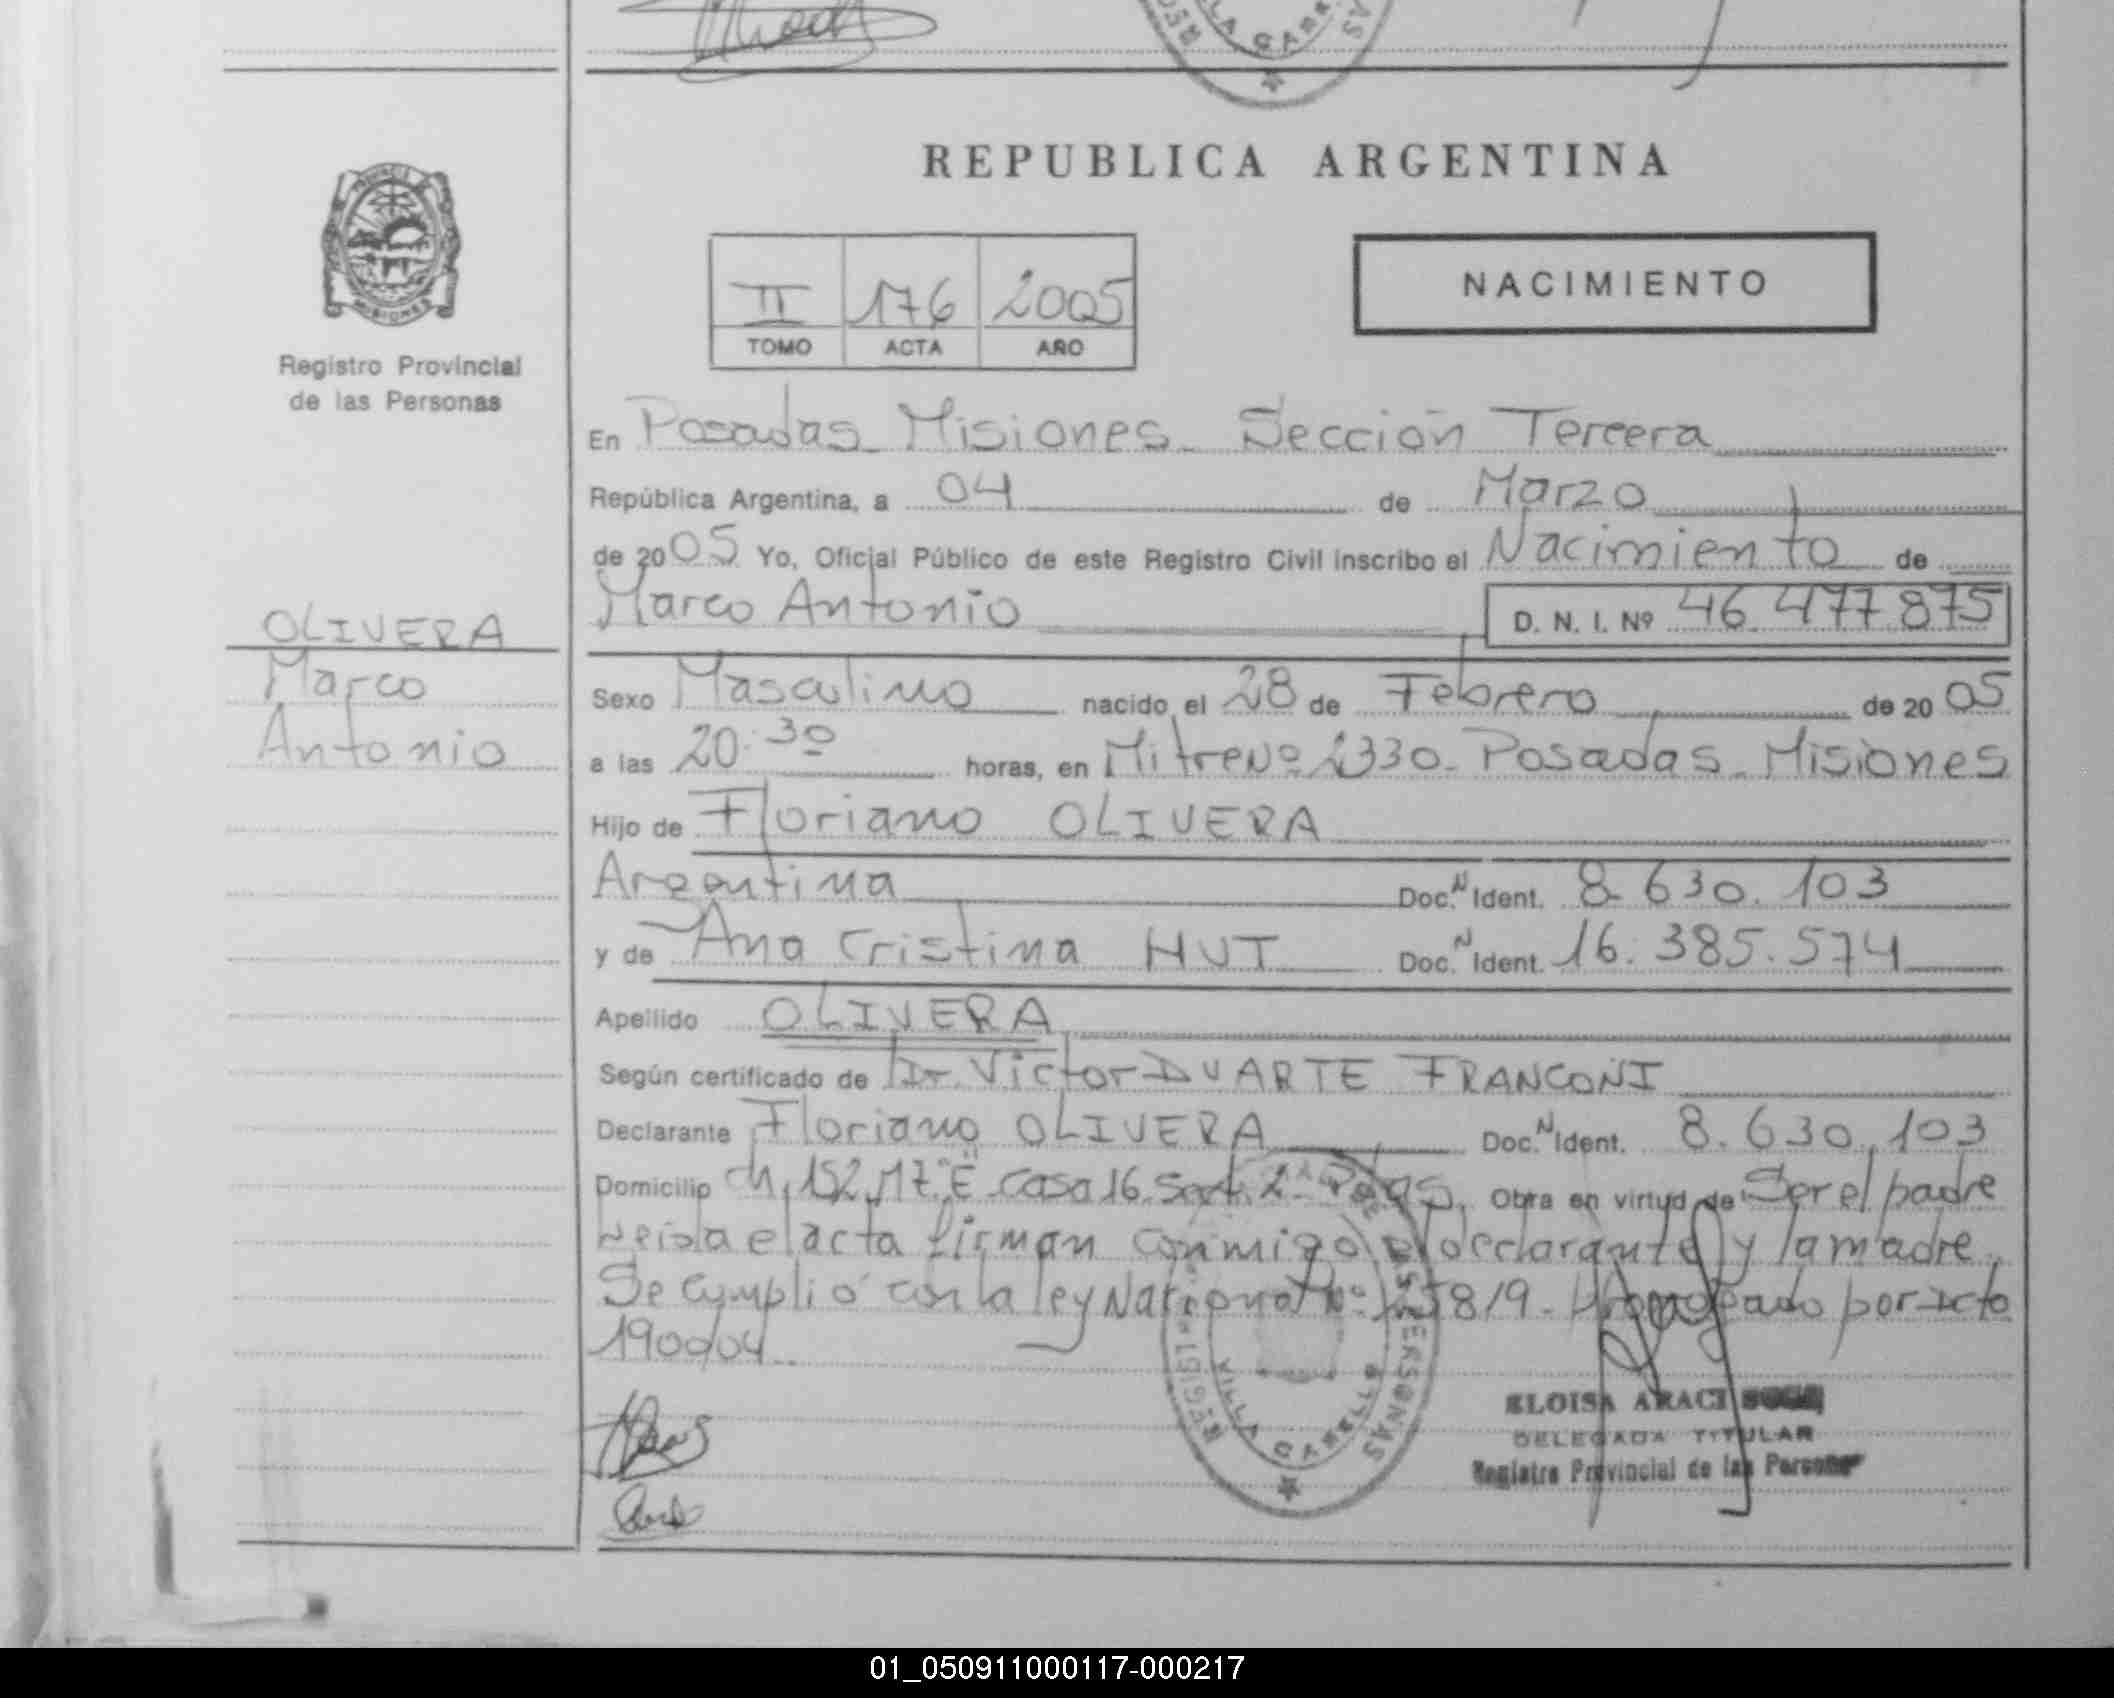 REPUBLICA ARGENTINA
PROVINCIA DE
MISIONES
Registro Provincial
de las Personas
II 176 2005
TOMO ACTA AÑO
NACIMIENTO
En Posadas_ Misiones_ Sección Tercera
República Argentina, a 04 de Marzo
de 2005 Yo, Oficial Público de este Registro Civil inscribo el Nacimiento de
Marco Antonio D. N. I. Nº 46 477 875
OLIVERA
Marco
Antonio
Sexo Masculino nacido el 28 de Febrero de 20 05
a las 20:30 horas, en Mitre Nº 2330_ Posadas_ Misiones
Hijo de Floriano OLIVERA
Argentina Doc. N Ident. 8.630.103
y de Ana Cristina HUT Doc. N Ident. 16.385.574
Apellido OLIVERA
Según certificado de Dr. Victor DUARTE FRANCONI
Declarante Floriano OLIVERA Doc. N Ident. 8.630.103
Domicilio ch. 152 casa 16 Obra en virtud de Ser el padre
Leida el acta firman conmigo el declarante y la madre.
Se cumplió con la ley Nacional Nº por Dcto
190/04
REGIST PERSONAS
VILLA CABELLO
ELOISA ARACI
DELEGADA TITULAR
Registro Provincial de las Personas
01_050911000117-000217